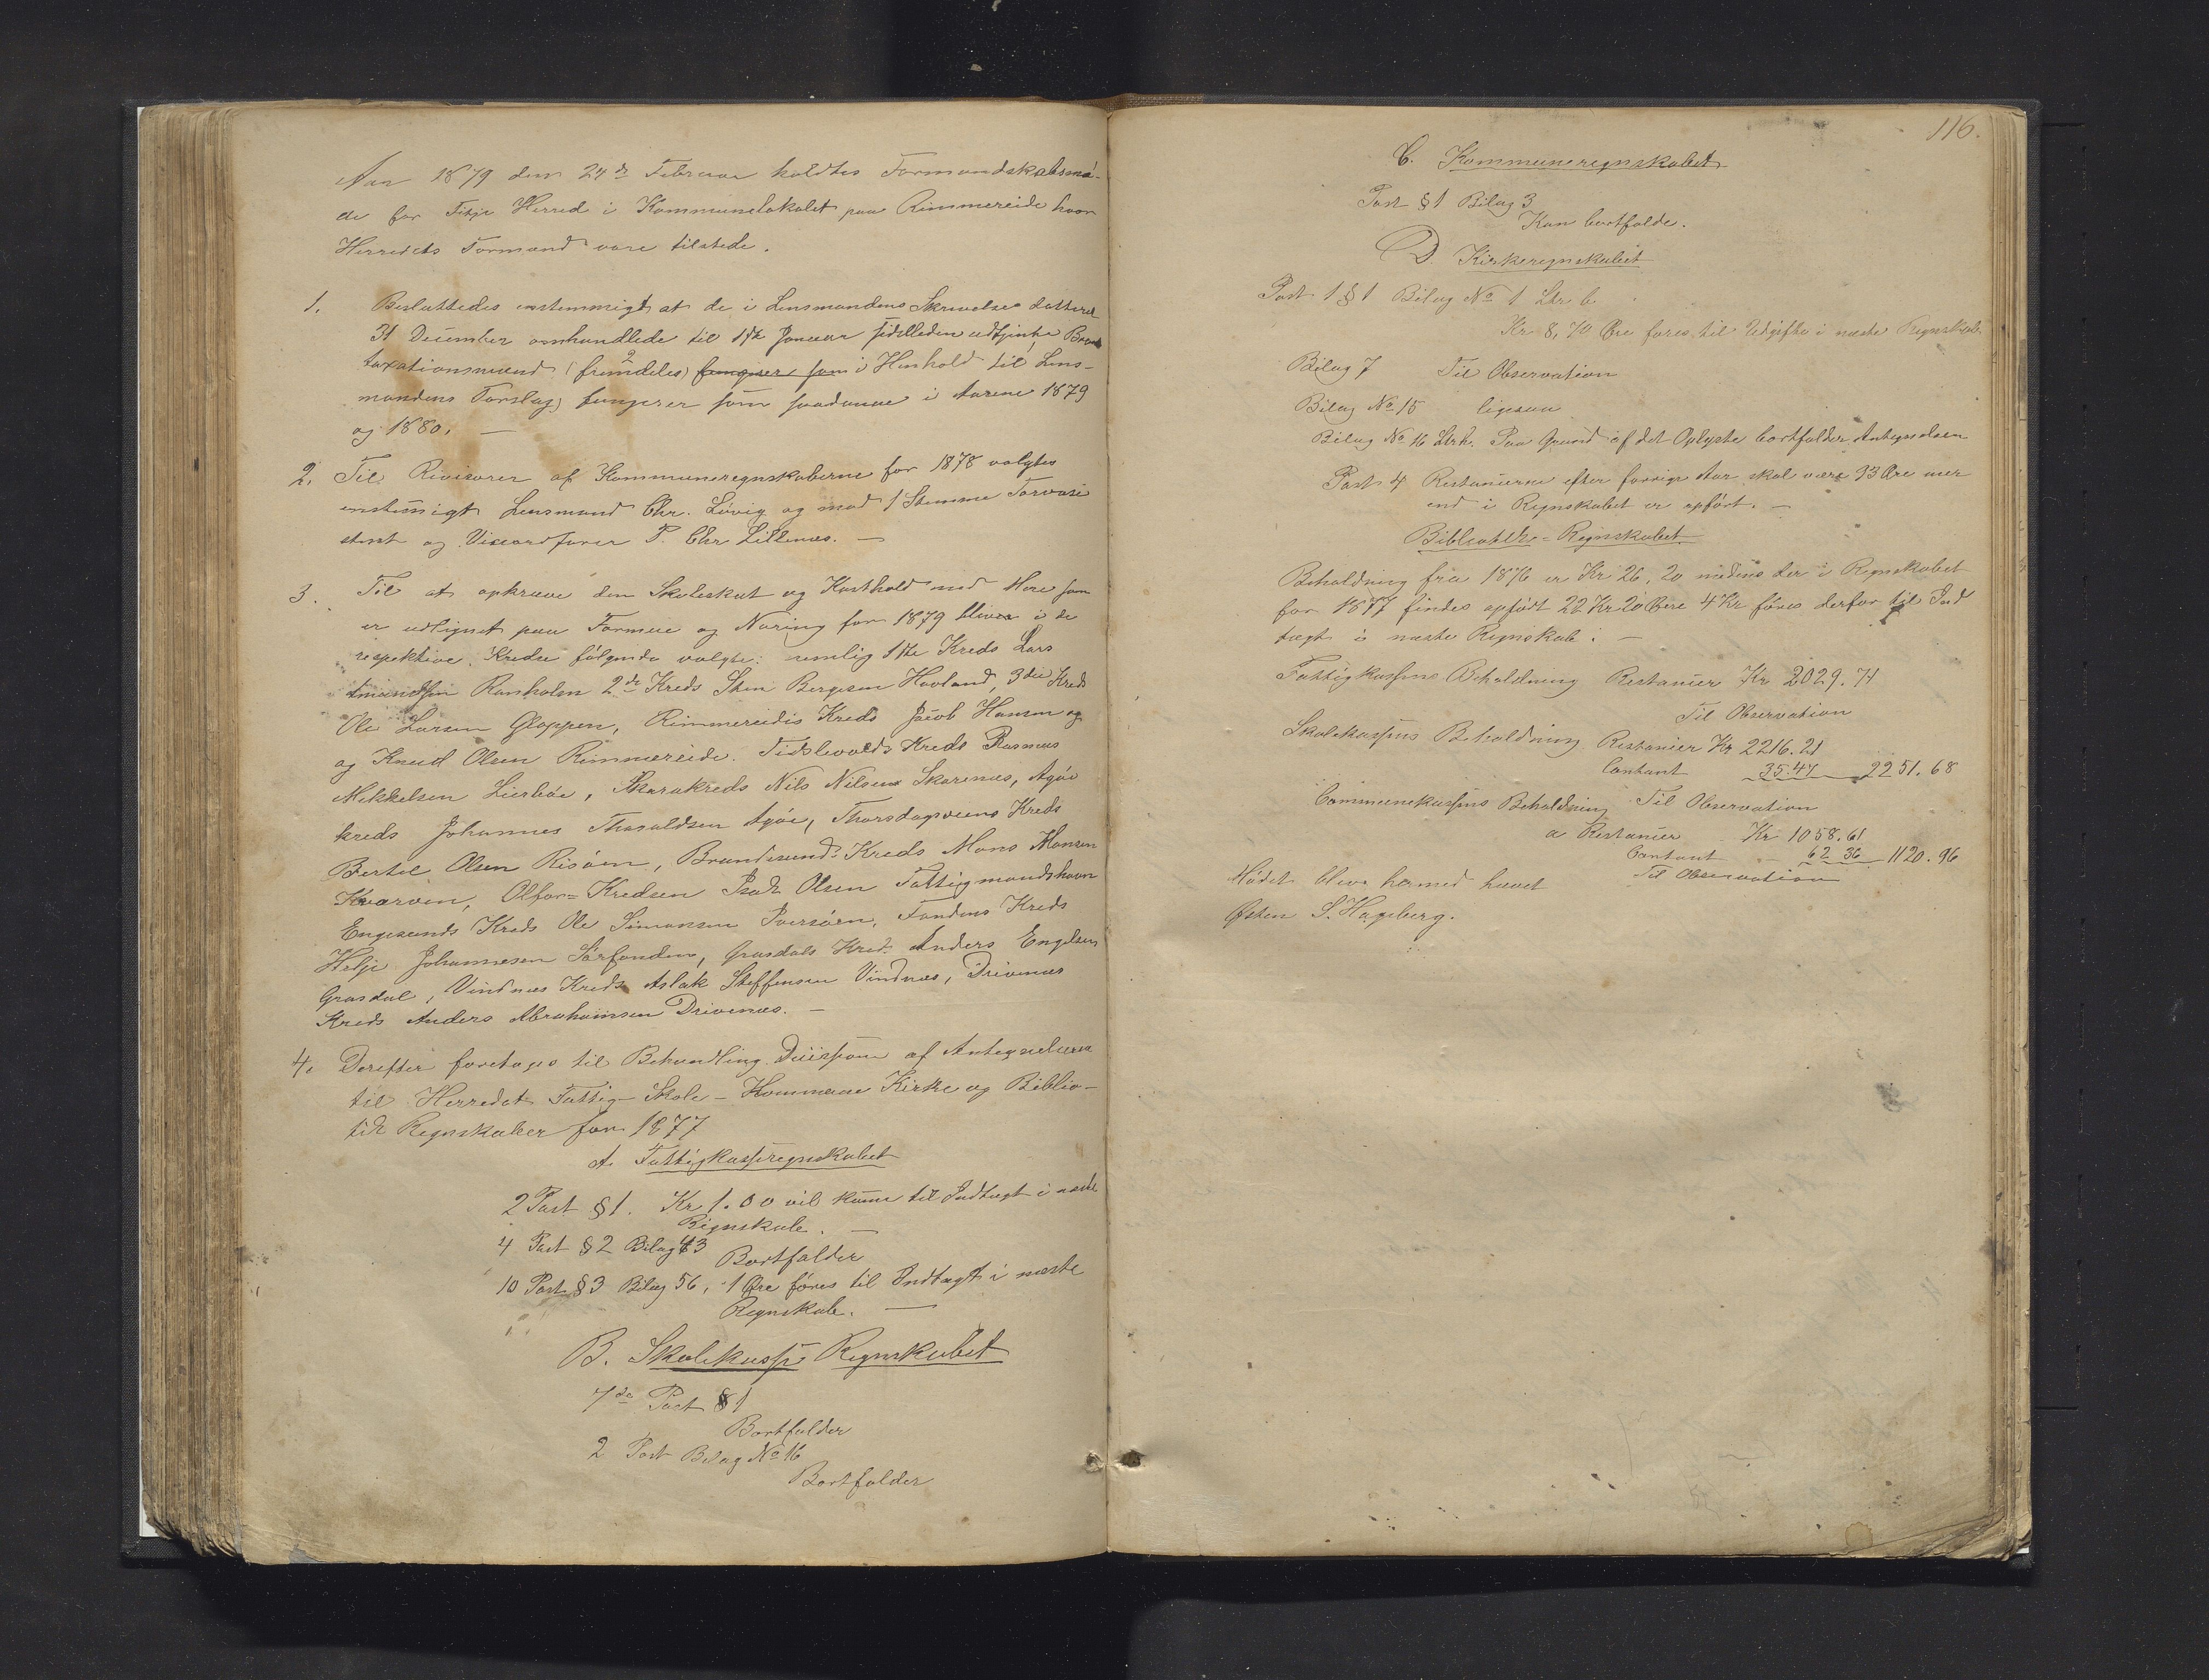 Aar 1879 den 24de Februar holdtes Formandskabsmö-
de for Fitje Herred i Kommunelokalet paa Rimmereide hvor
Herredets Formænd vare tilstede.
1. Besluttedes enstemmigt at de i Lensmandens Skrivelse datteret
31 December omhandlede til 1ste Januar sidstleden udtjente Brand
taxationsmænd (fremdeles) fungerer som i Henhold til Lens-
mandens Forslag) fungerer som saadanne i Aarene 1879
og 1880. —
2. Til Revisorer af Kommuneregnskaberne for 1878 valgtes
enstemigt Lensmand Chr. Lövig og mod 1 Stemme
og Viceordförer P. Chr. Lillenæs. —
3. Til at opkræve den Skoleskat og Kosthold med Mere som
er udlignet paa Formue og Næring for 1879 bliver i de
respektive Kredse fölgende valgte: nemlig 1ste Kreds Lars
Amundsen Ranholm 2de Kreds Sten Bergesen Hovland, 3die Kreds
Ole Larsen Gloppen, Rimmereides Kreds Jacob Hansen og
og Knud Olsen Rimmereide. Tidslevolds Kreds Rasmus
Mikkelsen Lierböe, Skarakreds Nils Nilsen Skarenæs, Agöe
kreds Johannes Thoraldsen Agöe, Thorsdagsveens Kreds
Bertel Olsen Risöen, Brandesunds Kreds Mons Monsen
Kvarven, Olfor-Kredsen Isak Olsen Fattigmandshavn
Engesunds Kreds Ole Simonsen Iversöen, Fondens Kreds
Helje Johannesen Sörfonden, Grasdals Kreds Anders Engelsen
Grasdal, Vindnæs Kreds Aslak Steffensen Vindnæs, Drivenæs
Kreds Anders Abrahamsen Drivenæs. —
4. Derefter foretoges til Behandling Desision af Antegnelserne
til Herredets Fattig- Skole- Kommune Kirke og Biblio-
tek Regnskaber for 1877
A. Fattigkasseregnskabet
2 Post § 1. Kr. 1.00 vil komme til Indtægt i næste
Regnskab. —
4 Post § 2 Bilag 43
Bortfalder
10 Post § 3 Bilag 56, 1 Øre föres til Indtægt i næste
Regnskab. —
B. Skolekasse Regnskabet
7de Post § 1
Bortfalder
2 Post Bilag No 16
Bortfalder
116.
C. Kommuneregnskabet
Post § 1 Bilag 3
Kan bortfalde.
D. Kirkeregnskabet
Post 1 § 1 Bilag No 1 Ltr b
Kr 8,70 Øre föres til Udgift i næste Regnskab
Bilag 7 Til Observation
Bilag No 15 ligesaa
Bilag No 16 Ltr h. Paa Grund af det Oplyste bortfalder Antegnelsen
Post 4 Restancerne efter forrige Aar skal være 93 Øre mer
end i Regnskabet er opfört. —
Bibliothek- Regnskabet
Beholdning fra 1876 er Kr 26,20 medens der i Regnskabet
for 1877 findes opfördt 22 Kr 20 Øre 4 Kr föres derfor til Ind
tægt i næste Regnskab. —
Fattigkassens Beholdning Restancer Kr 2029.71
Til Observation
Skolekassens Beholdning Restancer Kr 2216.21
Contant 35.47 2251.68
Communekassens Beholdning Til Observation
a Restancer Kr 1058.61
Contant - 62 36 1120.96
Til Observation
Mödet blev hermed hævet
Østen S. Hageberg.